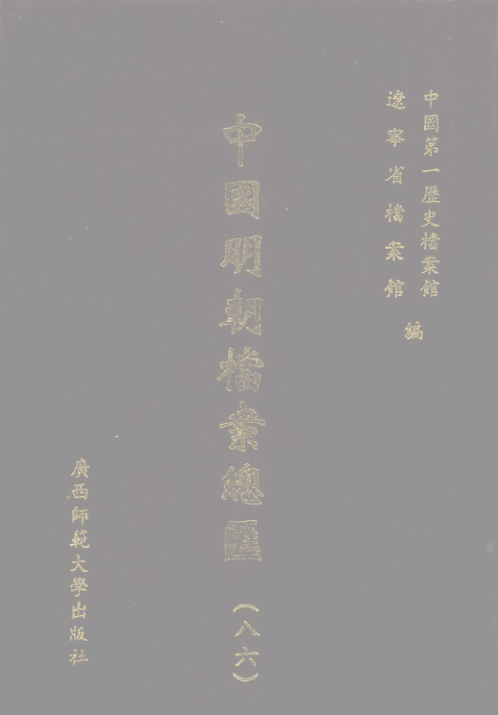 中國第一歷史檔案館
遼寧省檔案館
編
中國明朝檔案總匯
（八六）
廣西師範大學出版社